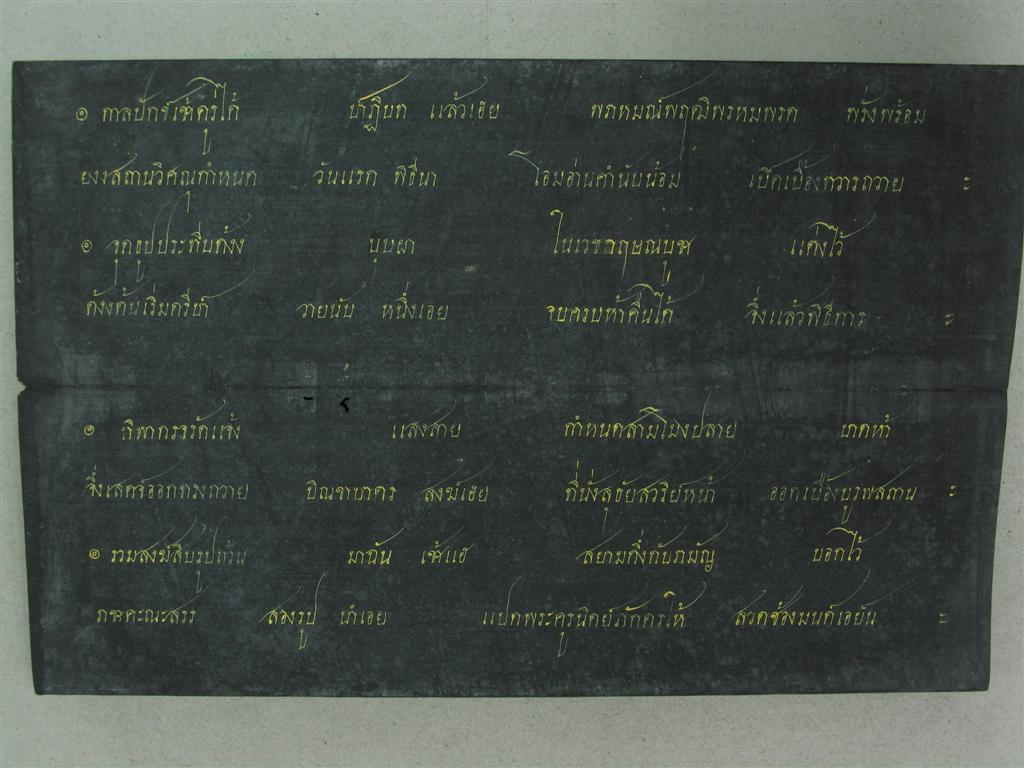 ๏ กาลปักข์เข้าคู่ไก้ ปาฏิบท แล้วเอย พราหมณ์พฤฒิพรหมพรต พรั่งพร้อม
ยงงสถานวิศณุกำหนด วันแรก พิธีนา โอมอ่านคำนับน้อม เบิกเบื้องทวารถวาย ฯ
๏ จุดธูปประทีบต้งง บุบผา ในเวชกฤษณบูช แต่งไว้
ต้งงต้นเริ่มตรีปา วายนับ หนึ่งเอย จบครบห้าคืนได้ จึ่งแล้วพิธีการ ฯ
๏ ทิพากรจรัดแจ้ง แสงสาย กำหนดสามโมงปลาย บาตห้า
จึ่งเสดจออกทรงถวาย บิณฑบาตร สงฆ์เฮย ที่นั่งสุธัยสวริย์หน้า ออกเบื้องบูรพสถาน ฯ
๏ รวมสงฆ์สิบรูปถ้วน มาฉัน เช้าแฮ สยามกึ่งกับรามัญ บอกไว้
ราชคะณะสรร สองรูป นำเอย แปดพระครูนิตย์ภักตรให้ สวดซ้องมนต์เอยัน ฯ